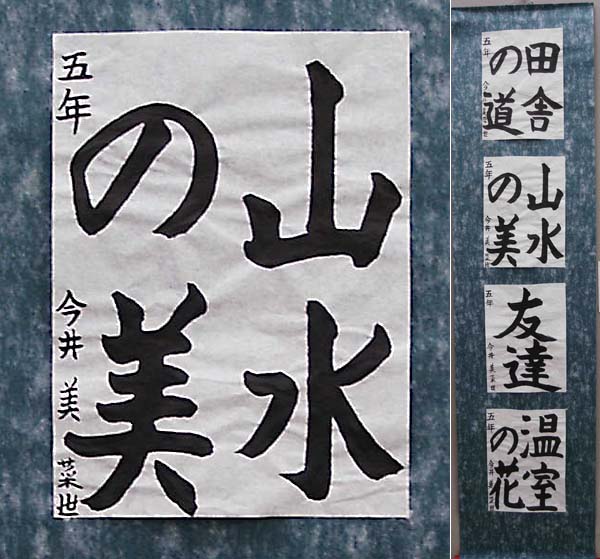 山水
の美
五年
今井 美菜世
田舎
の道
五年
山水
の美
五年
今井 美菜世
友達
五年
今井 美菜世
温室
の花
五年
今井 美菜世